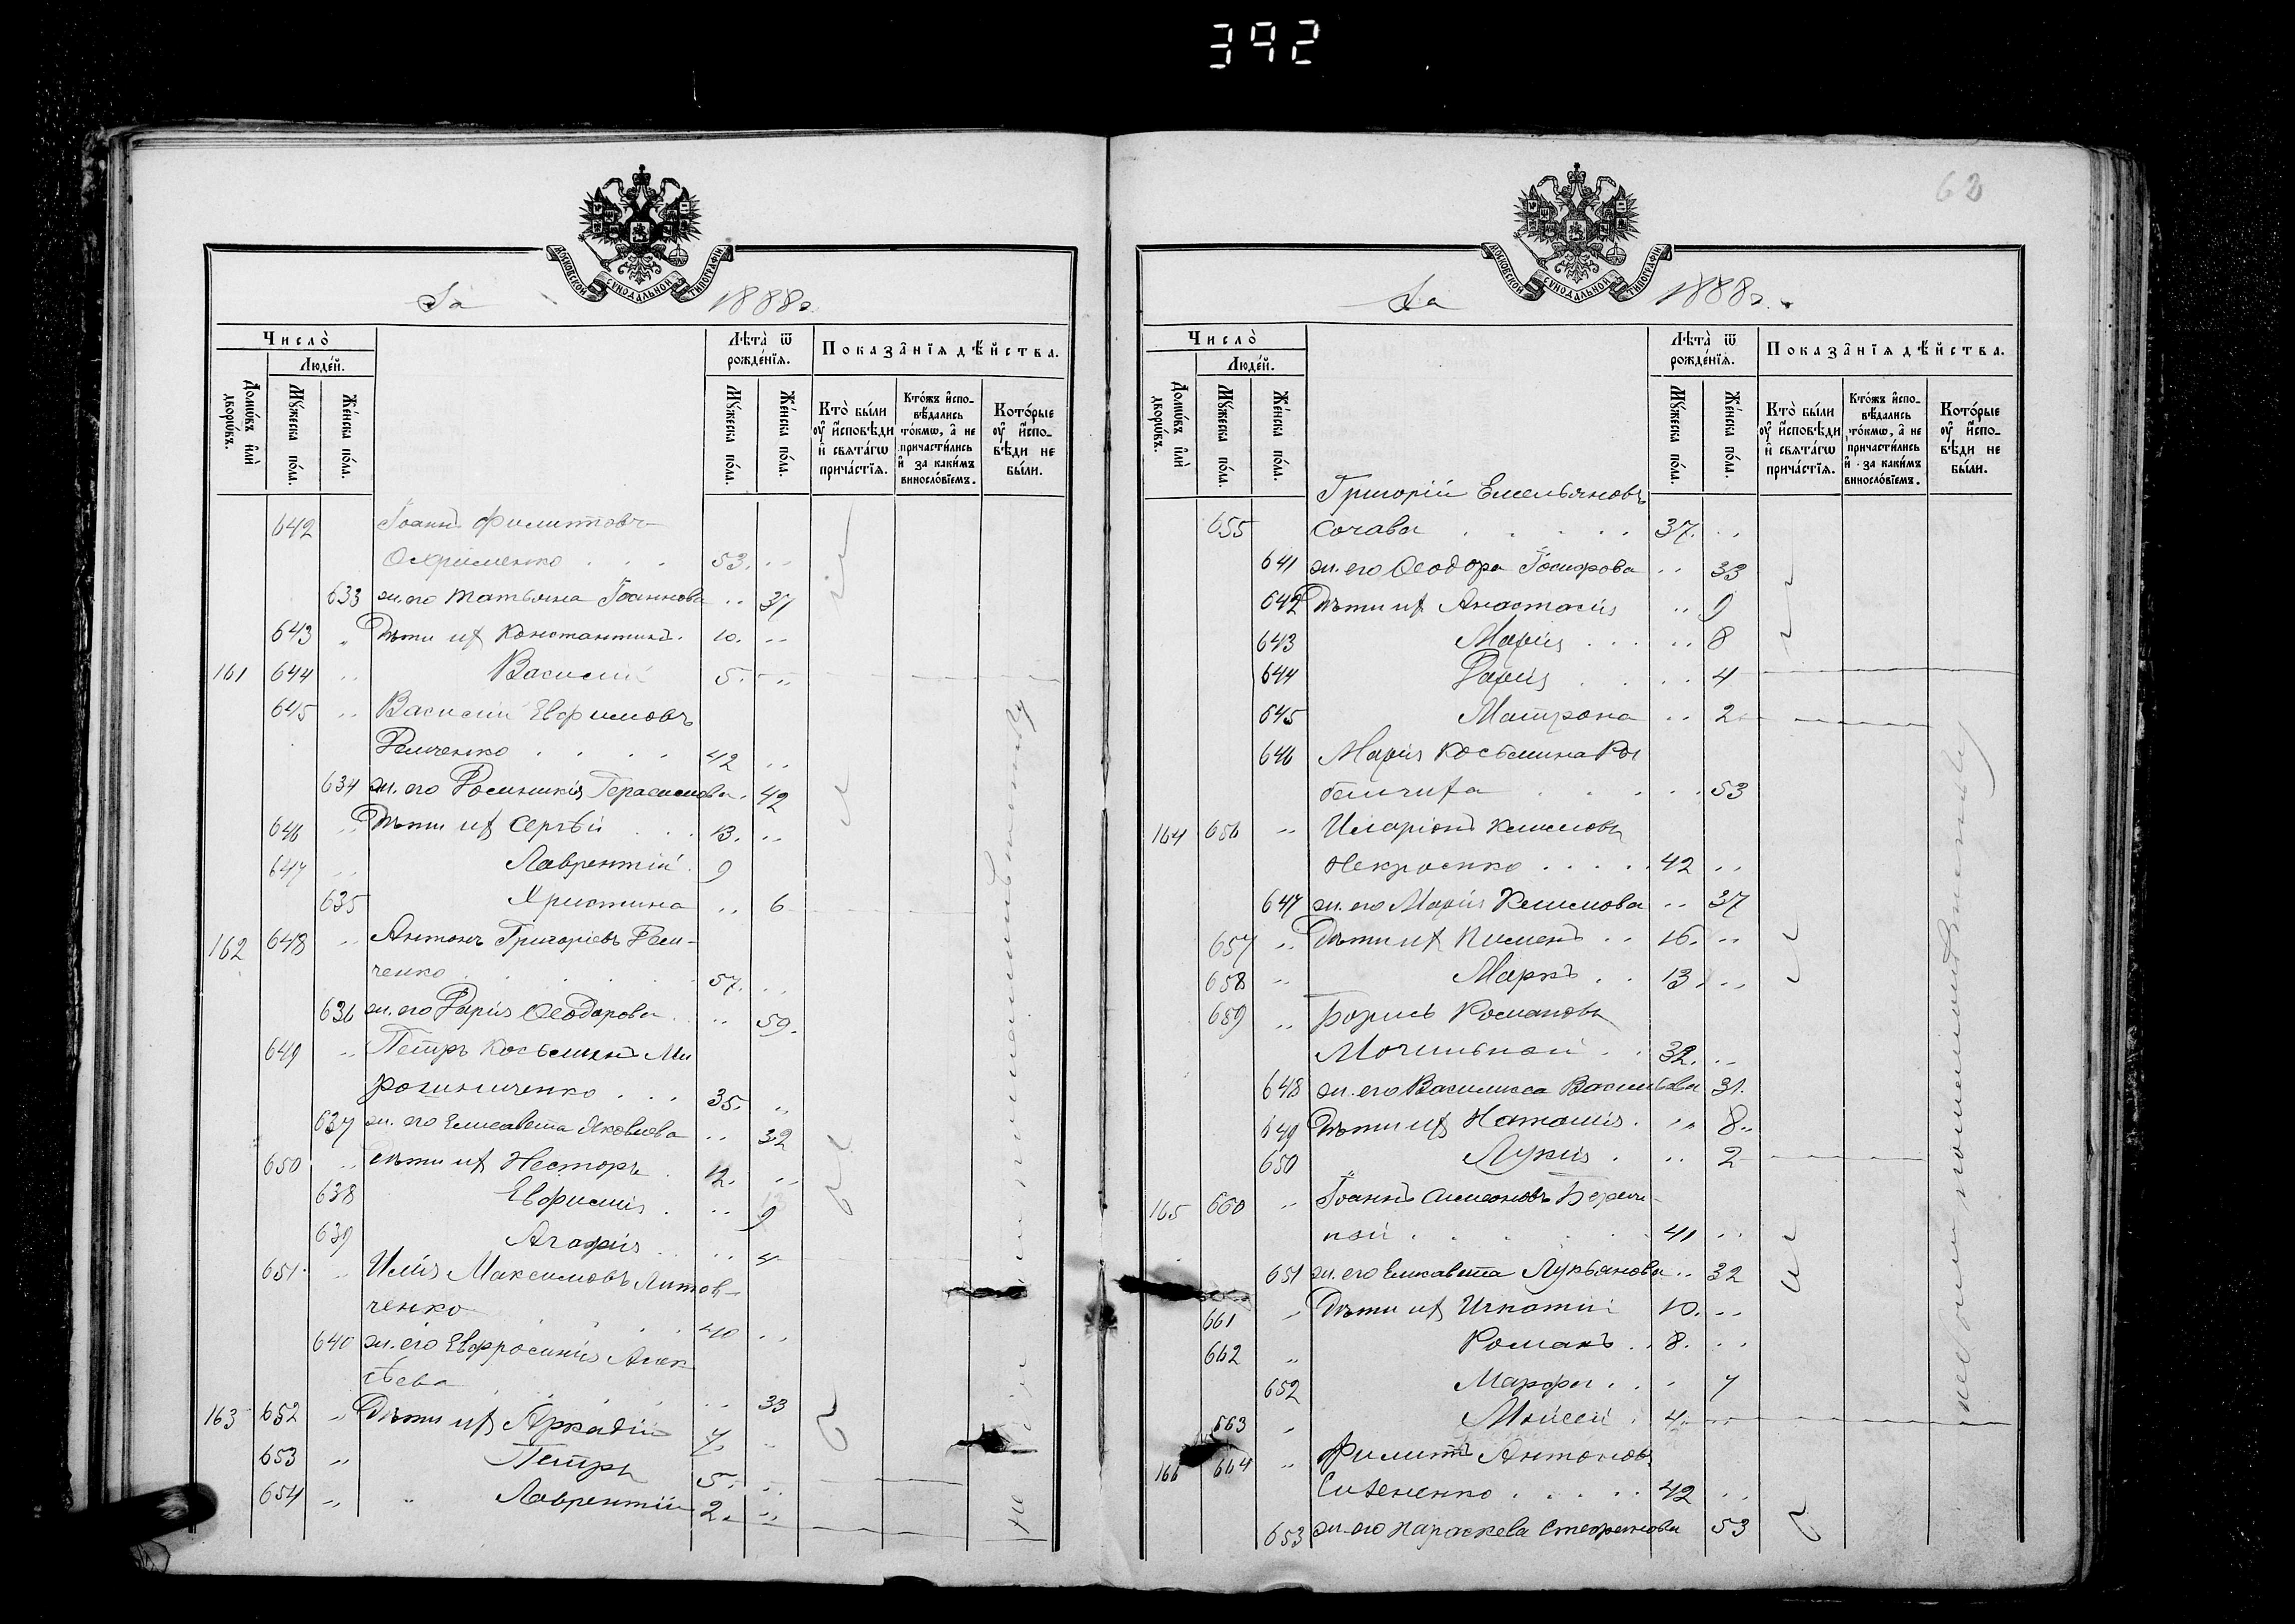 392
МОСКОВСКОЙ СѴНОДАЛЬНОЙ ТИПОГРАФІИ
За 1888г.
Число̀
Людей.
Домѡвъ или дворѡвъ.
Мужеска пола.
Женска пола.
Лѣта ѿ рожденїя.
Мужеска пола.
Женска пола.
Показанїя дѣйства.
Кто были оу исповѣди и святагѡ причастїя.
Ктожъ исповѣдались токмѡ, а не причастились и за какимъ винословїемъ.
Которые оу исповѣди не были.
642 Іоаннъ Филипповъ
Охрименко . . . 53. ..
633 ж. его Татьяна Іоаннова .. 37
643 „ Дѣти их Константинъ. 10. ..
161 644 .. Василій 5. ..
645 .. Василий Евфимовъ
Демченко . . . . 42 ..
634 ж. его Домникія Герасимова. 42
646 .. Дѣти их Сергѣй . . . 13. ..
647 .. Лаврентій . 9
635 Христина .. 6
162 648 .. Антонъ Григоріевъ Дем-
ченко . . . . . 57. ..
636 ж. его Дарія Ѳеодорова . .. 59.
649 .. Петръ Косьминъ Ми
рошниченко . . . 35. ..
637 ж. его Елисавета Яковлева .. 32
650 .. Дѣти их Несторъ . 12. ..
638 Евфимія . .. 9
639 Агафія . . .. 4
651 .. Илія Максимовъ Литов-
ченко . . . . 40 ..
640 ж. его Евфросинія Алек
сѣева . . . . .. 33
163 652 .. Дѣти их Аркадій 7. ..
653 .. Петръ 5. ..
654 .. Лаврентій 2. ..
62
МОСКОВСКОЙ СѴНОДАЛЬНОЙ ТИПОГРАФІИ
За 1888г.
Число̀
Людей.
Домѡвъ или дворѡвъ.
Мужеска пола.
Женска пола.
Лѣта ѿ рожденїя.
Мужеска пола.
Женска пола.
Показанїя дѣйства.
Кто были оу исповѣди и святагѡ причастїя.
Ктожъ исповѣдались токмѡ, а не причастились и за какимъ винословїемъ.
Которые оу исповѣди не были.
Григорій Емельяновъ
655 Сочава . . . . . 37. ..
641 ж. его Ѳеодора Іосифова .. 33
642 Дѣти их Анастасія .. 9
643 Марія . . . .. 8
644 Дарія . . . .. 4
645 Матрона .. 2
646 Марія Косьмина
. . . . . 53
164 656 .. Иларіонъ Климовъ
. . . . 42 ..
647 ж. его Марія Климова .. 37
657 .. Дѣти их Пименъ .. 16. ..
658 .. Маркъ . . 13. ..
659 .. Борисъ Романовъ
Мочильной . . 32. ..
648 ж. его Василисса Васильева 31.
649 Дѣти их Наталія . .. 8..
650 Лукія . .. 2
165 660 .. Іоаннъ Симеоновъ
ной . . . . . 41 ..
651 ж. его Елисавета Лукьянова .. 32
661 .. Дѣти их Игнатій 10. ..
662 .. Романъ . . 8. ..
652 Марфа . . . 7
663 .. Моисей . 4. ..
166 664 .. Филиппъ Антоновъ
. . . . . 42 ..
653 ж. его Параскева Стефанова 53